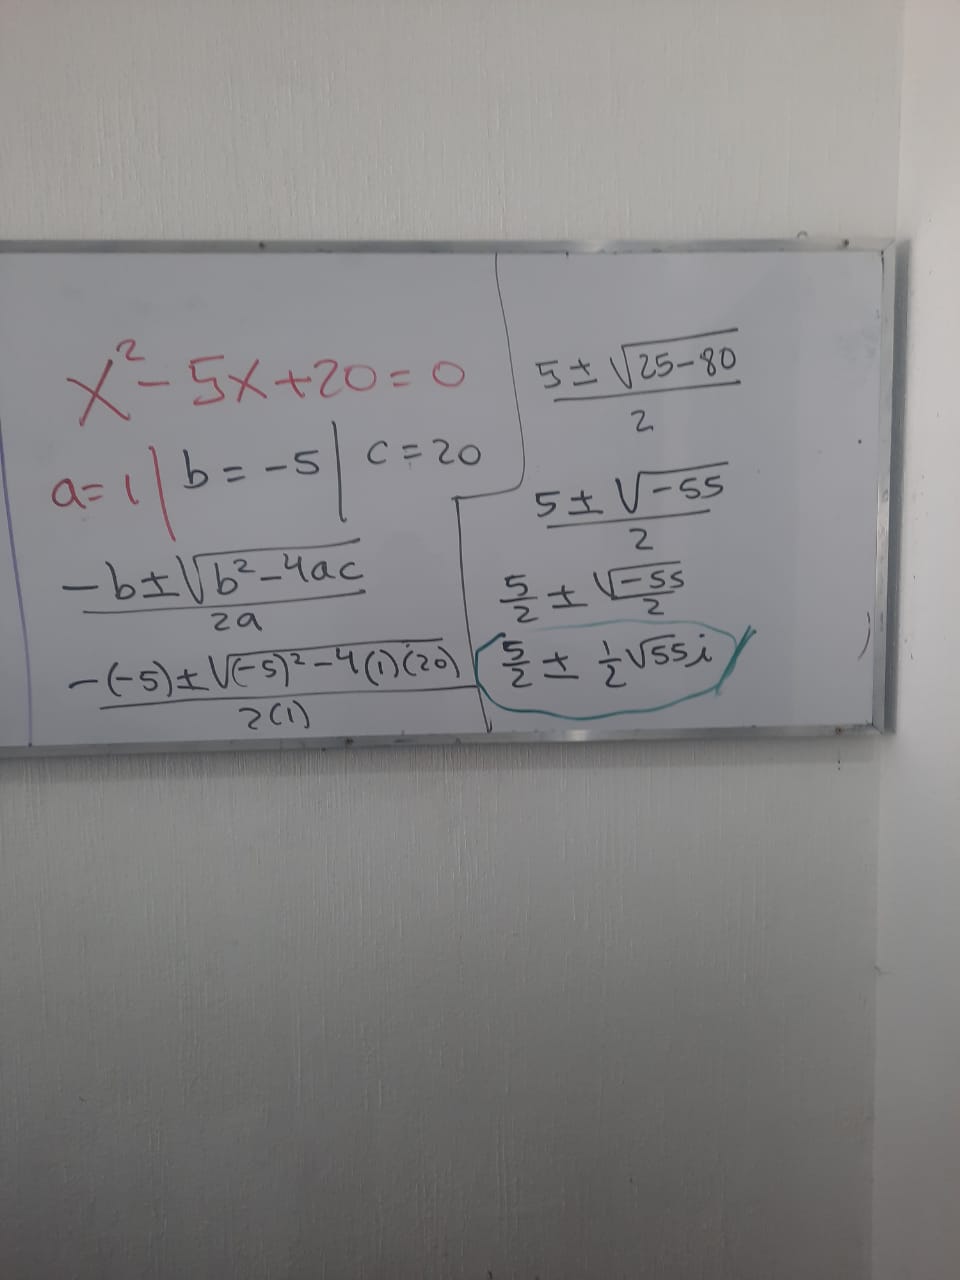 x² - 5x + 20 = 0
a = 1 | b = -5 | c = 20
-b ± √(b² - 4ac) / 2a
-(-5) ± √((-5)² - 4(1)(20)) / 2(1)
5 ± √(25-80) / 2
5 ± √(-55) / 2
5/2 ± √(-55)/2
5/2 ± 1/2 √55 i